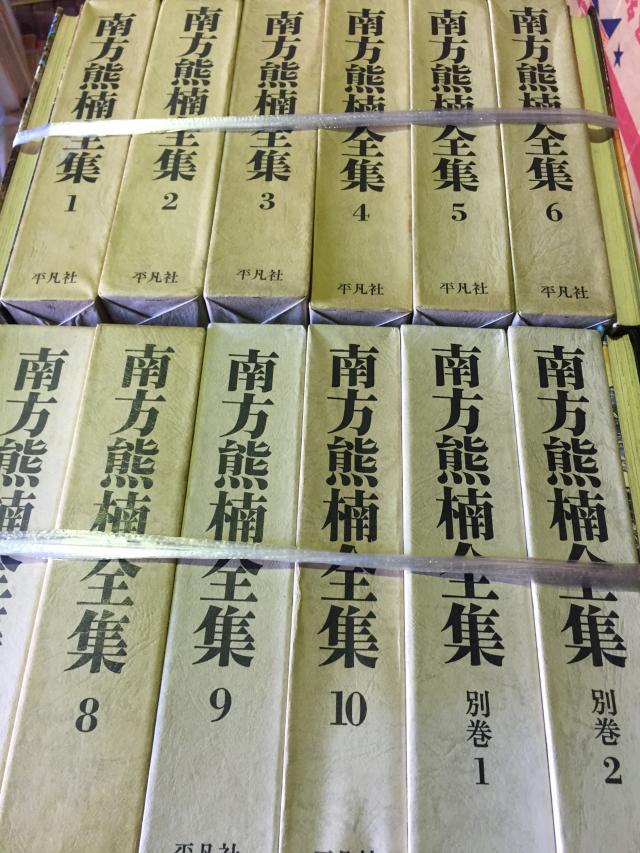 南方熊楠全集
1
平凡社
南方熊楠全集
2
平凡社
南方熊楠全集
3
平凡社
南方熊楠全集
4
平凡社
南方熊楠全集
5
平凡社
南方熊楠全集
6
平凡社
南方熊楠全集
南方熊楠全集
8
南方熊楠全集
9
平凡社
南方熊楠全集
10
平凡社
南方熊楠全集
別巻
1
南方熊楠全集
別巻
2